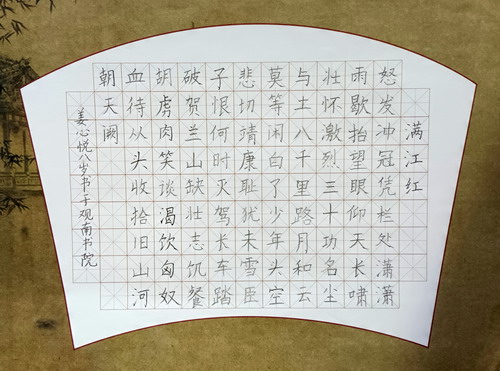 满江红
怒发冲冠凭栏处潇潇
雨歇抬望眼仰天长啸
壮怀激烈三十功名尘
与土八千里路月和云
莫等闲白了少年头空
悲切靖康耻犹未雪臣
子恨何时灭驾长车踏
破贺兰山缺壮志饥餐
胡虏肉笑谈渴饮匈奴
血待从头收拾旧山河
朝天阙
姜心悦八岁书于观南书院